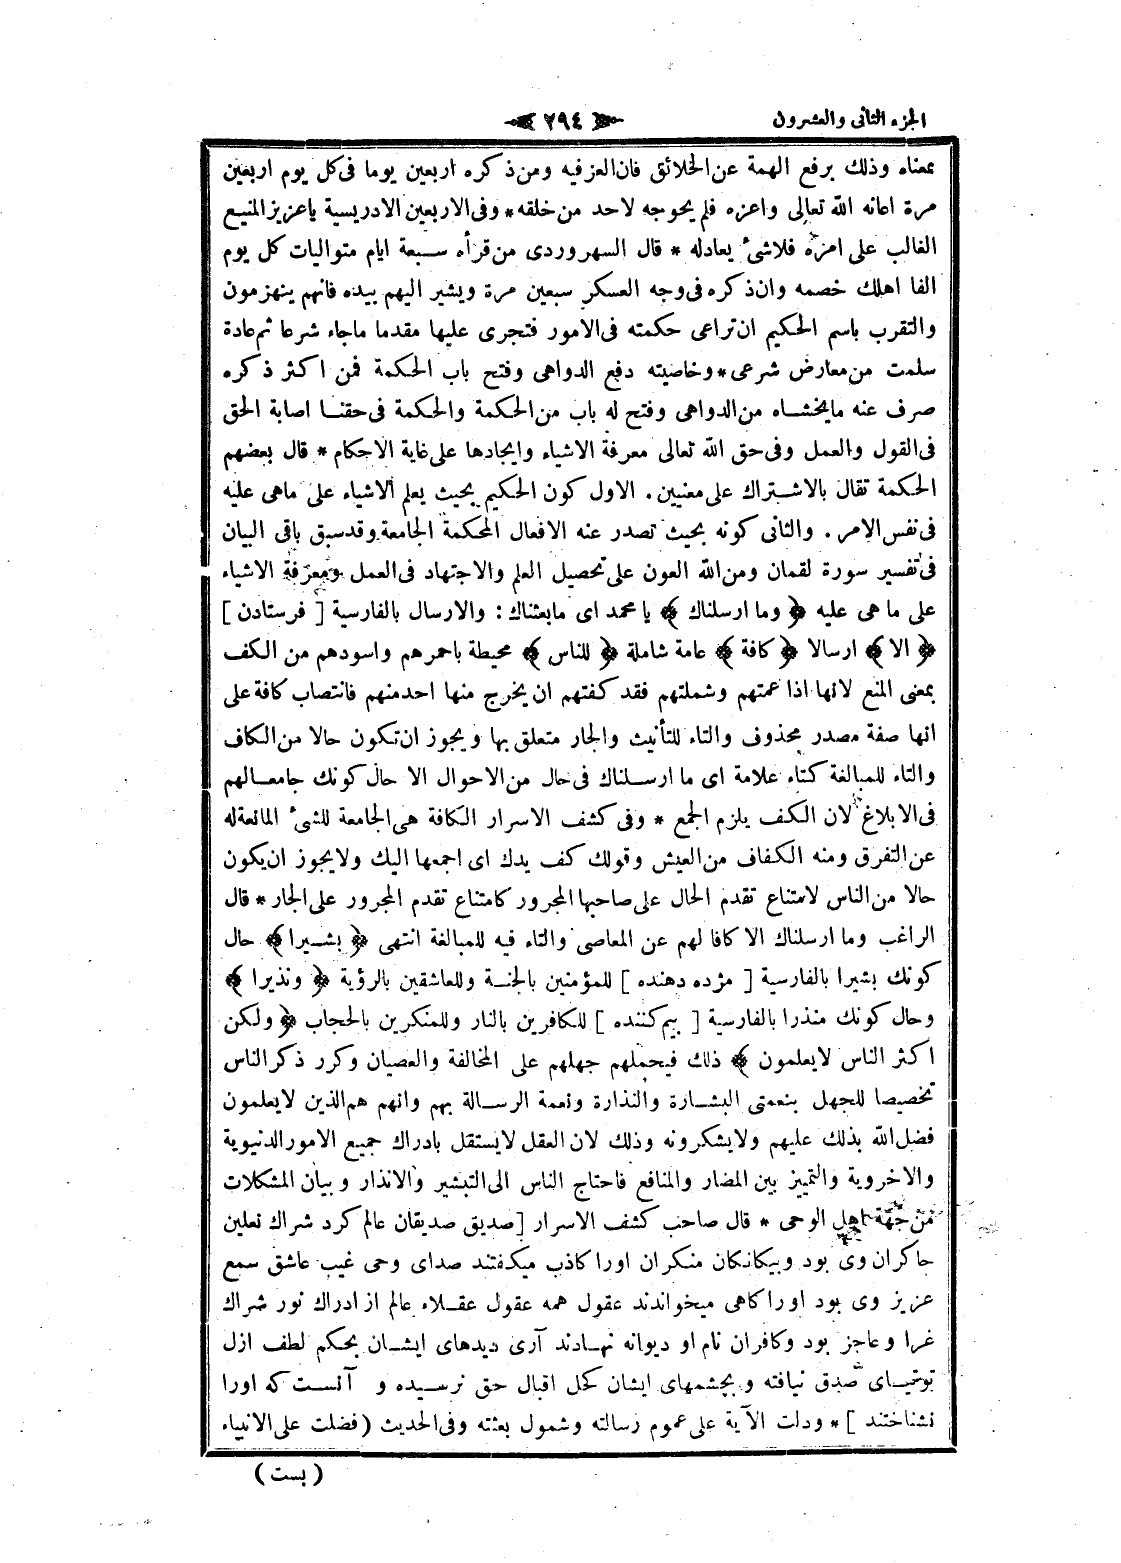 الجزء الثانى والعشرون
٢٩٤
بمعناه وذلك برفع الهمة عن الخلائق فان العز فيه ومن ذكره اربعين يوما فى كل يوم اربعين
مرة اعانه الله تعالى واعزه فلم يحوجه لاحد من خلقه * وفى الاربعين الادريسية ياعزيز المنيع
الغالب على امره فلاشئ يعادله * قال السهروردى من قرأه سبعة ايام متواليات كل يوم
الفا اهلك خصمه وان ذكره فى وجه العسكر سبعين مرة ويشير اليهم بيده فانهم ينهزمون
والتقرب باسم الحكيم ان تراعى حكمته فى الامور فتجرى عليها مقدما ماجاء شرعا ثم عادة
سلمت من معارض شرعى * وخاصيته دفع الدواهى وفتح باب الحكمة فمن اكثر ذكره
صرف عنه مايخشاه من الدواهى وفتح له باب من الحكمة والحكمة فى حقنا اصابة الحق
فى القول والعمل وفى حق الله تعالى معرفة الاشياء وايجادها على غاية الاحكام * قال بعضهم
الحكمة تقال بالاشتراك على معنيين . الاول كون الحكيم بحيث يعلم الاشياء على ماهى عليه
فى نفس الامر . والثانى كونه بحيث تصدر عنه الافعال المحكمة الجامعة وقد سبق باقى البيان
فى تفسير سورة لقمان ومن الله العون على تحصيل العلم والاجتهاد فى العمل ومعرفة الاشياء
على ما هى عليه ﴿ وما ارسلناك ﴾ يا محمد اى مابعثناك : والارسال بالفارسية [ فرستادن ]
﴿ الا ﴾ ارسالا ﴿ كافة ﴾ عامة شاملة ﴿ للناس ﴾ محيطة باحمرهم واسودهم من الكف
بمعنى المنع لانها اذا عمتهم وشملتهم فقد كفتهم ان يخرج منها احد منهم فانتصاب كافة على
انها صفة مصدر محذوف والتاء للتأنيث والجار متعلق بها ويجوز ان تكون حالا من الكاف
والتاء للمبالغة كتاء علامة اى ما ارسلناك فى حال من الاحوال الا حال كونك جامعا لهم
فى الابلاغ لان الكف يلزم الجمع * وفى كشف الاسرار الكافة هى الجامعة للشئ المانعة له
عن التفرق ومنه الكفاف من العيش وقولك كف يدك اى اجمعها اليك ولايجوز ان يكون
حالا من الناس لامتناع تقدم الحال على صاحبها المجرور كامتناع تقدم المجرور على الجار * قال
الراغب وما ارسلناك الا كافا لهم عن المعاصى والتاء فيه للمبالغة انتهى ﴿ بشيرا ﴾ حال
كونك بشيرا بالفارسية [ مژده دهنده ] للمؤمنين بالجنة وللعاشقين بالرؤية ﴿ ونذيرا ﴾
وحال كونك منذرا بالفارسية [ بيم كننده ] للكافرين بالنار وللمنكرين بالحجاب ﴿ ولكن
اكثر الناس لايعلمون ﴾ ذلك فيحملهم جهلهم على المخالفة والعصيان وكرر ذكر الناس
تخصيصا للجهل بنعمتى البشارة والنذارة ونعمة الرسالة بهم وانهم هم الذين لايعلمون
فضل الله بذلك عليهم ولايشكرونه وذلك لان العقل لايستقل بادراك جميع الامور الدنيوية
والاخروية والتمييز بين المضار والمنافع فاحتاج الناس الى التبشير والانذار وبيان المشكلات
من جهة اهل الوحى * قال صاحب كشف الاسرار [ صديق صديقان عالم كرد شراك نعلين
جاكران وى بود وبيكانكان منكران اورا كاذب ميكفتند صداى وحى غيب عاشق سمع
عزيز وى بود اورا كاهى ميخواندند عقول همه عقول عقلاء عالم از ادراك نور شراك
غرا وعاجز بود وكافران نام او ديوانه نهادند آرى ديدهاى ايشان بحكم لطف ازل
توتياى صدق نيافته وبچشمهاى ايشان كحل اقبال حق نرسيده و آنست كه اورا
نشناختند ] * ودلت الآية على عموم رسالته وشمول بعثته وفى الحديث ( فضلت على الانبياء
( بست )